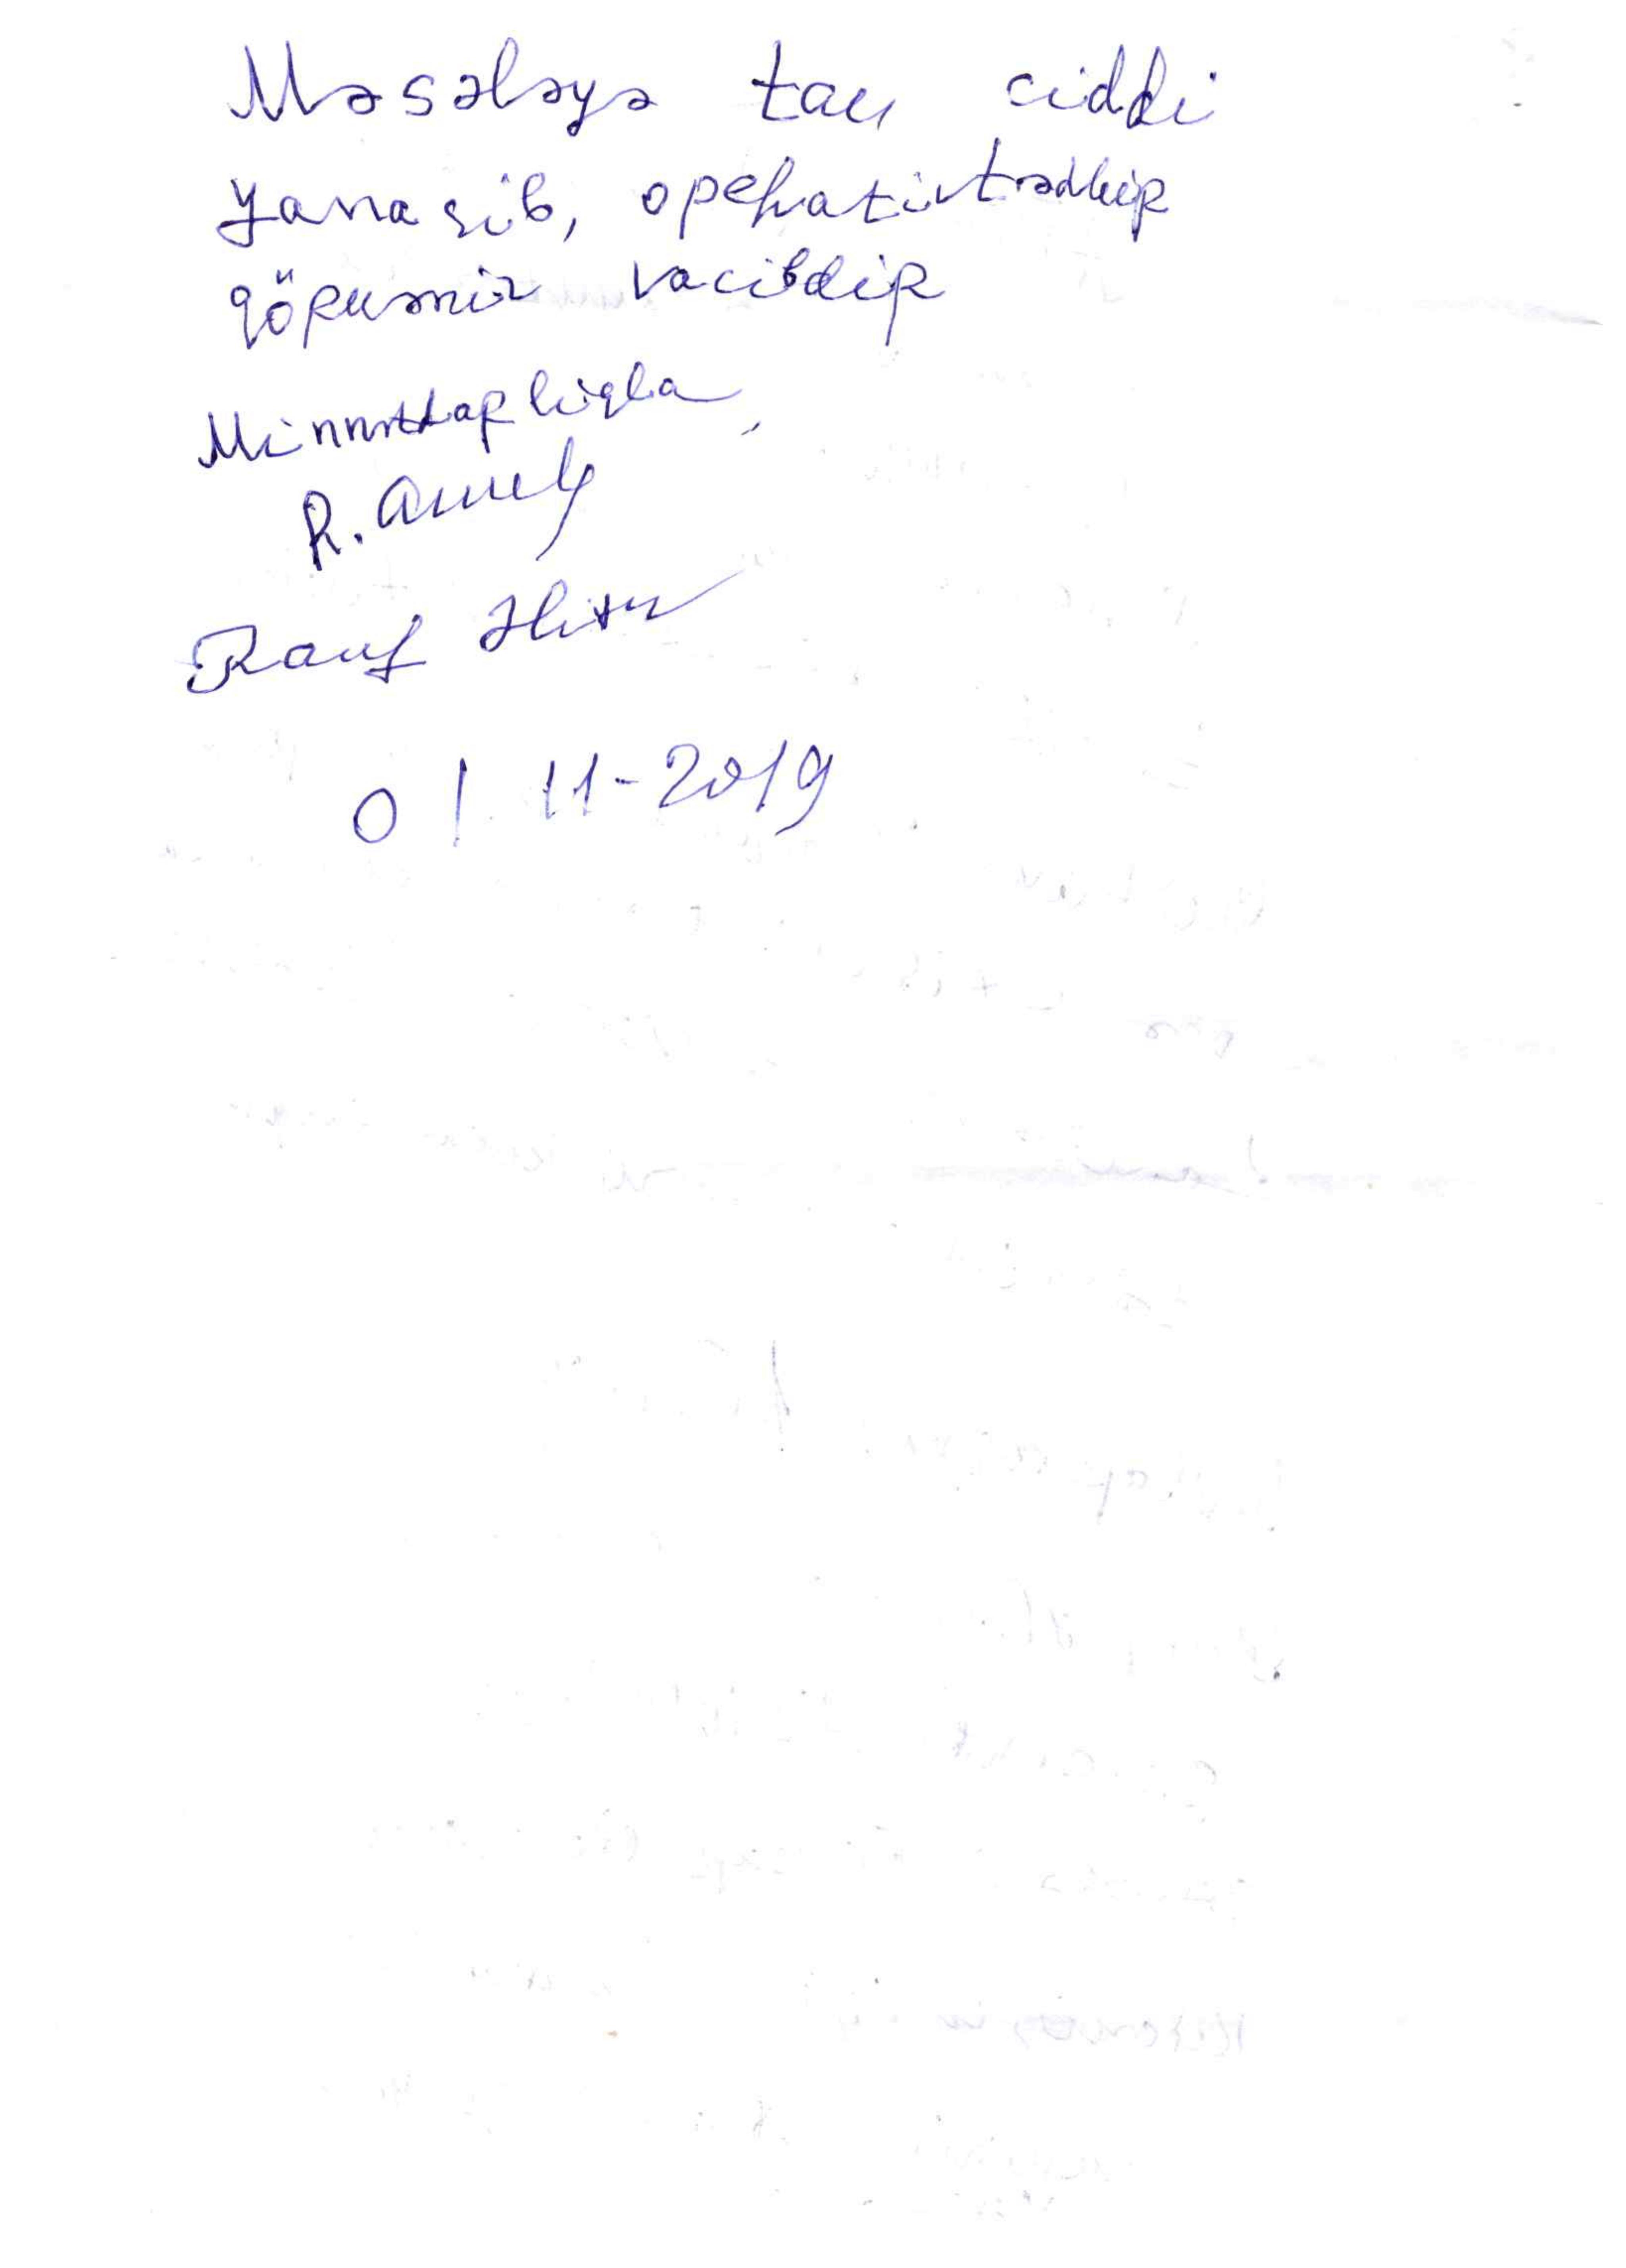 Məsələyə tam ciddi
yanaşıb, operativ tədbir
görməniz vacibdir
Minnətdarlıqla,
R.
Rauf Əliyev
01 11-2019